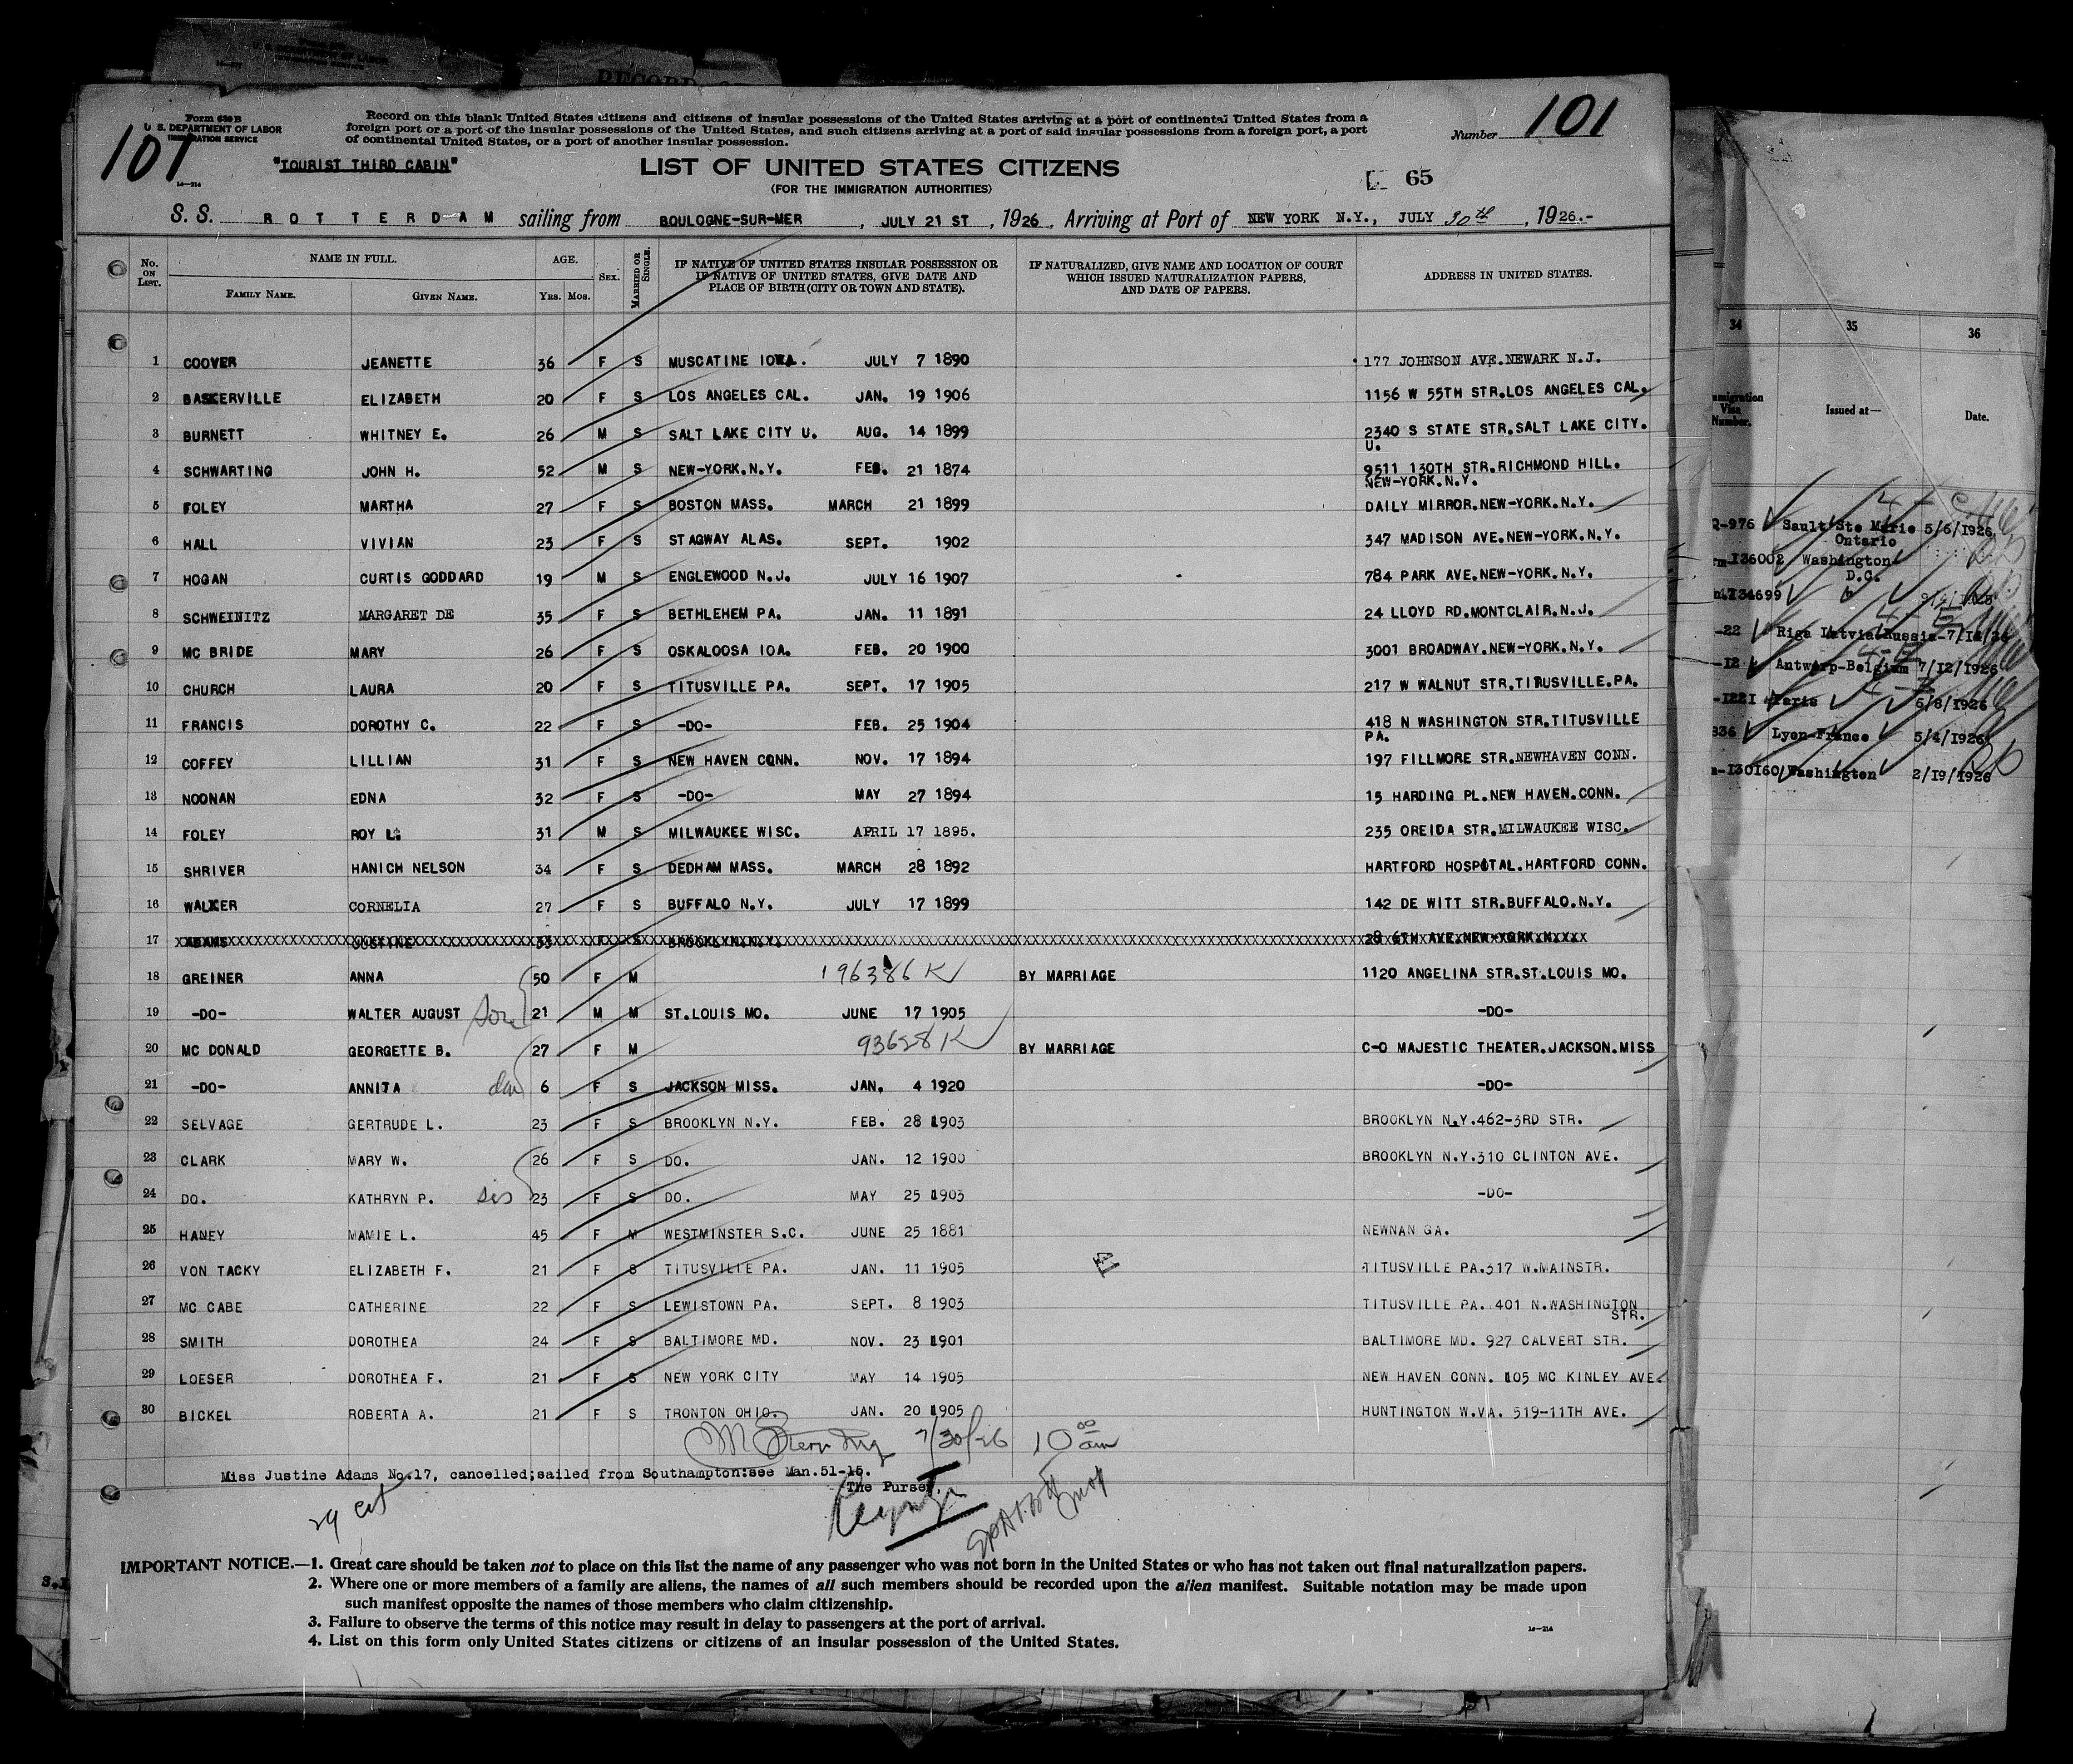 RECORD
101
Form 630 B
U. S. DEPARTMENT OF LABOR
IMMIGRATION SERVICE
16—214
"TOURIST THIRD CABIN"
Record on this blank United States citizens and citizens of insular possessions of the United States arriving at a port of continental United States from a
foreign port or a port of the insular possessions of the United States, and such citizens arriving at a port of said insular possessions from a foreign port, a port
of continental United States, or a port of another insular possession.
Number 101
LIST OF UNITED STATES CITIZENS
(FOR THE IMMIGRATION AUTHORITIES)
65
S. S. ROTTERDAM sailing from BOULOGNE-SUR-MER, JULY 21 ST, 1926, Arriving at Port of NEW YORK N.Y., JULY 30th, 1926.-
No. ON LIST. NAME IN FULL. FAMILY NAME. GIVEN NAME. AGE. YRS. MOS. SEX. MARRIED OR SINGLE. IF NATIVE OF UNITED STATES INSULAR POSSESSION OR IF NATIVE OF UNITED STATES, GIVE DATE AND PLACE OF BIRTH (CITY OR TOWN AND STATE). IF NATURALIZED, GIVE NAME AND LOCATION OF COURT WHICH ISSUED NATURALIZATION PAPERS, AND DATE OF PAPERS. ADDRESS IN UNITED STATES.
1 COOVER JEANETTE 36 F S MUSCATINE IOWA. JULY 7 1890 177 JOHNSON AVE.NEWARK N.J.
2 BASKERVILLE ELIZABETH 20 F S LOS ANGELES CAL. JAN. 19 1906 1156 W 55TH STR.LOS ANGELES CAL.
3 BURNETT WHITNEY E. 26 M S SALT LAKE CITY U. AUG. 14 1899 2340 S STATE STR.SALT LAKE CITY.
U.
4 SCHWARTING JOHN H. 52 M S NEW-YORK.N.Y. FEB. 21 1874 9511 130TH STR.RICHMOND HILL.
NEW-YORK.N.Y.
5 FOLEY MARTHA 27 F S BOSTON MASS. MARCH 21 1899 DAILY MIRROR.NEW-YORK.N.Y.
6 HALL VIVIAN 23 F S STAGWAY ALAS. SEPT. 1902 347 MADISON AVE.NEW-YORK.N.Y.
7 HOGAN CURTIS GODDARD 19 M S ENGLEWOOD N.J. JULY 16 1907 784 PARK AVE.NEW-YORK.N.Y.
8 SCHWEINITZ MARGARET DE 35 F S BETHLEHEM PA. JAN. 11 1891 24 LLOYD RD.MONTCLAIR.N.J.
9 MC BRIDE MARY 26 F S OSKALOOSA IOA. FEB. 20 1900 3001 BROADWAY.NEW-YORK.N.Y.
10 CHURCH LAURA 20 F S TITUSVILLE PA. SEPT. 17 1905 217 W WALNUT STR.TITUSVILLE.PA.
11 FRANCIS DOROTHY C. 22 F S -DO- FEB. 25 1904 418 N WASHINGTON STR.TITUSVILLE
PA.
12 COFFEY LILLIAN 31 F S NEW HAVEN CONN. NOV. 17 1894 197 FILLMORE STR.NEWHAVEN CONN.
13 NOONAN EDNA 32 F S -DO- MAY 27 1894 15 HARDING PL.NEW HAVEN.CONN.
14 FOLEY ROY L. 31 M S MILWAUKEE WISC. APRIL 17 1895. 235 OREIDA STR.MILWAUKEE WISC.
15 SHRIVER HANICH NELSON 34 F S DEDHAM MASS. MARCH 28 1892 HARTFORD HOSPITAL.HARTFORD CONN.
16 WALKER CORNELIA 27 F S BUFFALO N.Y. JULY 17 1899 142 DE WITT STR.BUFFALO.N.Y.
17 ADAMS JUSTINE 33 F S BROOKLYN.N.Y. 28 6TH AVE.NEW-YORK.N.Y.
18 GREINER ANNA 50 F M 196386 K BY MARRIAGE 1120 ANGELINA STR.ST.LOUIS MO.
19 -DO- WALTER AUGUST son 21 M M ST.LOUIS MO. JUNE 17 1905 -DO-
20 MC DONALD GEORGETTE B. 27 F M 93628 K BY MARRIAGE C-O MAJESTIC THEATER.JACKSON.MISS
21 -DO- ANNITA dau 6 F S JACKSON MISS. JAN. 4 1920 -DO-
22 SELVAGE GERTRUDE L. 23 F S BROOKLYN N.Y. FEB. 28 1903 BROOKLYN N.Y.462-3RD STR.
23 CLARK MARY W. 26 F S DO. JAN. 12 1900 BROOKLYN N.Y.310 CLINTON AVE.
24 DO. KATHRYN P. sis 23 F S DO. MAY 25 1903 -DO-
25 HANEY MAMIE L. 45 F M WESTMINSTER S.C. JUNE 25 1881 NEWNAN GA.
26 VON TACKY ELIZABETH F. 21 F S TITUSVILLE PA. JAN. 11 1905 TITUSVILLE PA.317 W.MAINSTR.
27 MC CABE CATHERINE 22 F S LEWISTOWN PA. SEPT. 8 1903 TITUSVILLE PA. 401 N.WASHINGTON
STR.
28 SMITH DOROTHEA 24 F S BALTIMORE MD. NOV. 23 1901 BALTIMORE MD. 927 CALVERT STR.
29 LOESER DOROTHEA F. 21 F S NEW YORK CITY MAY 14 1905 NEW HAVEN CONN. 105 MC KINLEY AVE.
30 BICKEL ROBERTA A. 21 F S TRONTON OHIO. JAN. 20 1905 HUNTINGTON W.VA. 519-11TH AVE.
7/30/26 10 00 am
Miss Justine Adams No.17, cancelled;sailed from Southampton:see Man.51-15.
The Purser,
29 cit
IMPORTANT NOTICE.—1. Great care should be taken not to place on this list the name of any passenger who was not born in the United States or who has not taken out final naturalization papers.
2. Where one or more members of a family are aliens, the names of all such members should be recorded upon the alien manifest. Suitable notation may be made upon
such manifest opposite the names of those members who claim citizenship.
3. Failure to observe the terms of this notice may result in delay to passengers at the port of arrival.
4. List on this form only United States citizens or citizens of an insular possession of the United States.
16—214
34 35 36
Visa Number. Issued at— Date.
-976 Sault Ste Marie 5/6/1926
Ontario
I36002 Washington
D.C.
I34699
-22 Riga Latvia-Russia-7/
-12 Antwerp-Belgium 7/12/1926
-I22I Paris 6/8/1926
836 Lyon-France 5/4/1926
-I30160 Washington 2/19/1926